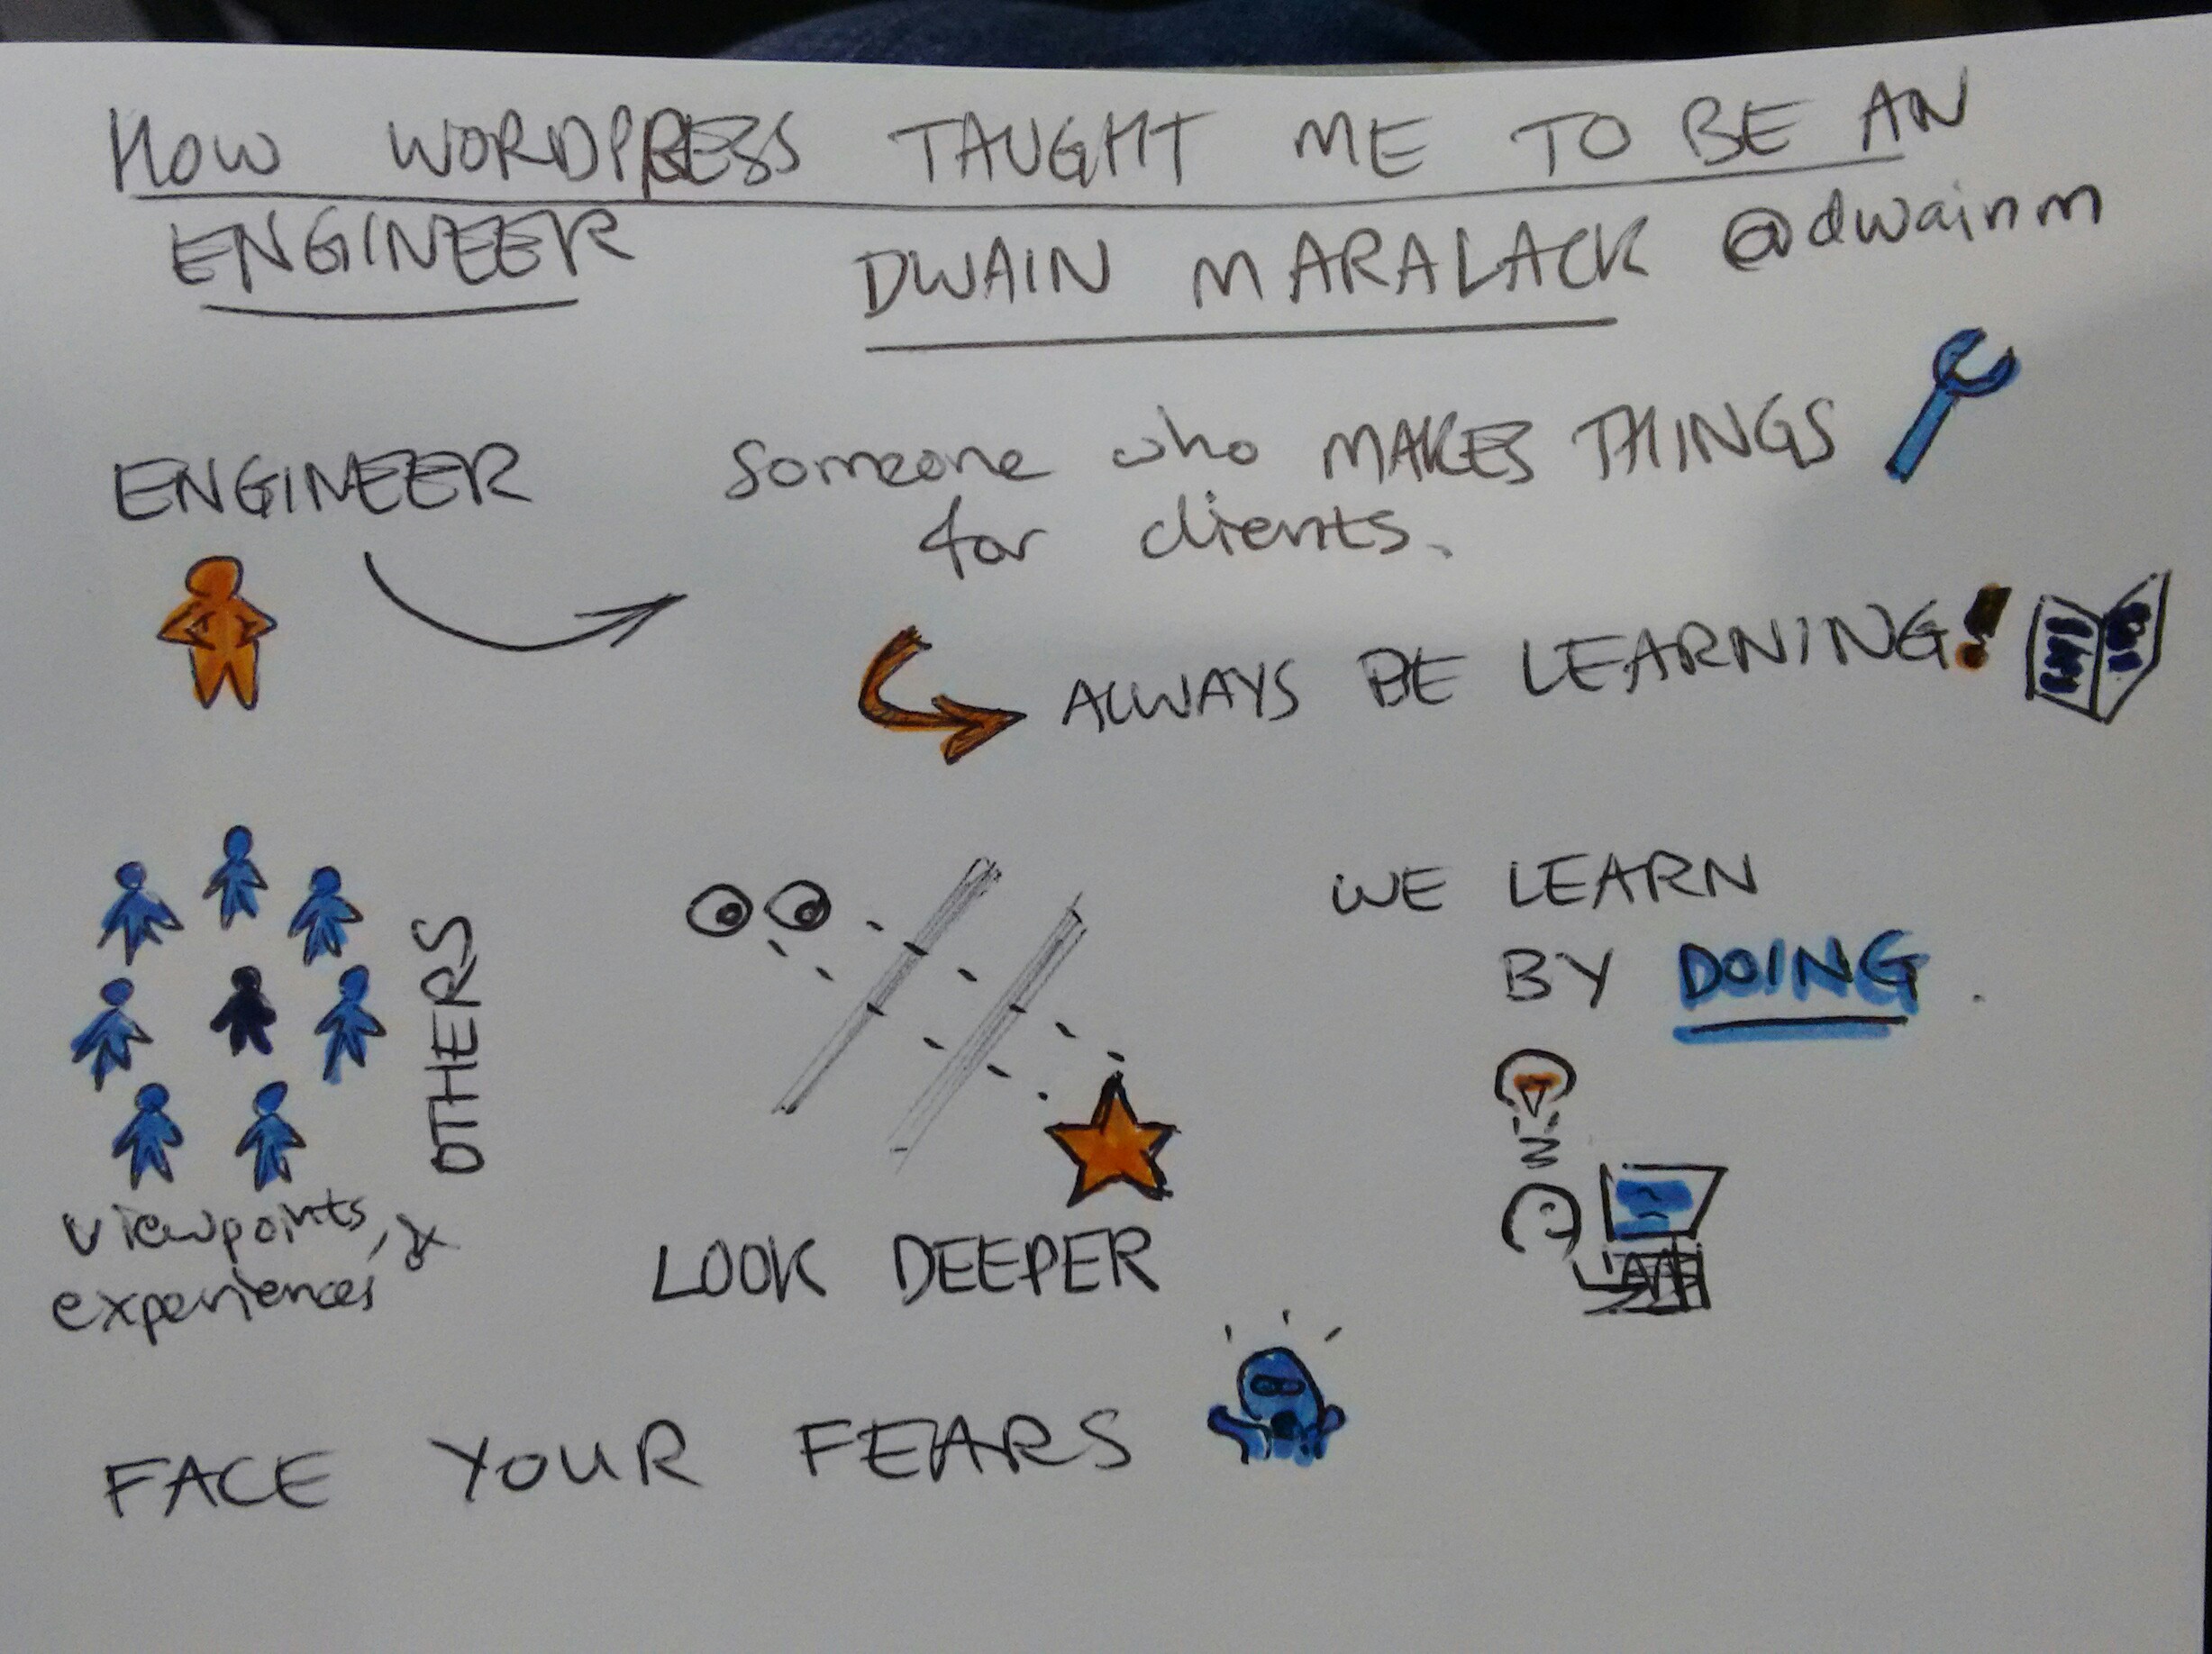 HOW WORDPRESS TAUGHT ME TO BE AN
ENGINEER
DWAIN MARALACK @dwainm
ENGINEER
someone who MAKES THINGS
for clients.
ALWAYS BE LEARNING!
OTHERS
viewpoints, &
experiences
LOOK DEEPER
WE LEARN
BY DOING.
FACE YOUR FEARS